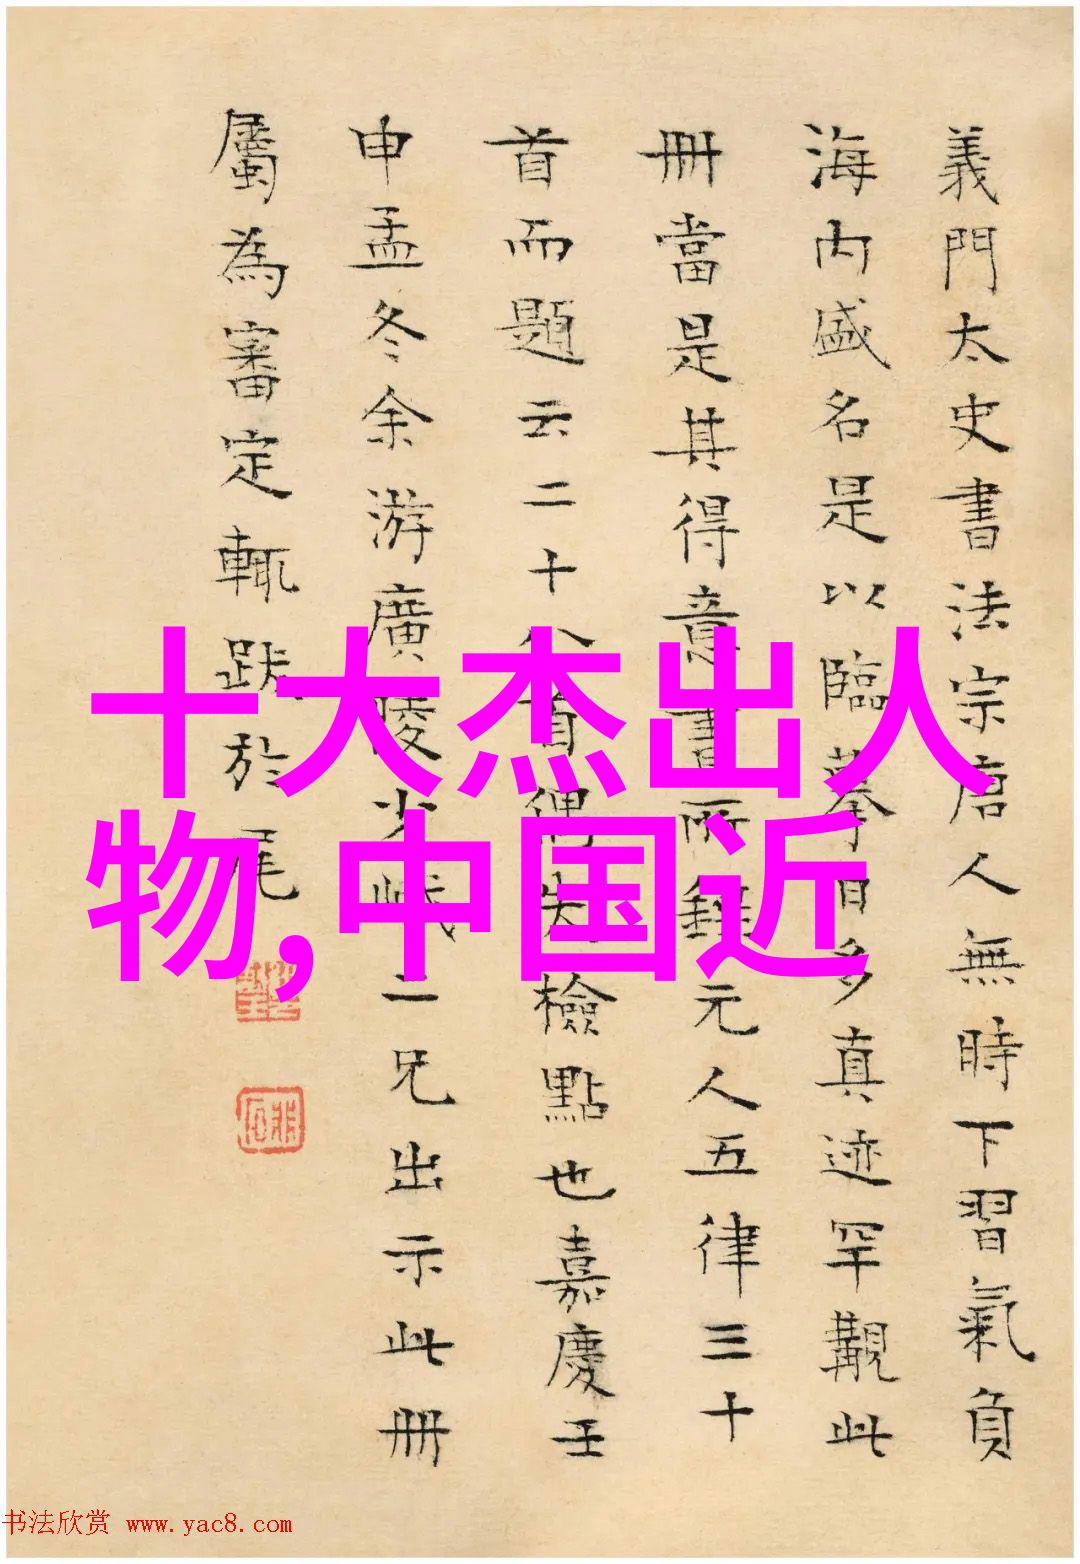 義門太史書法宗唐人無時下習氣負
海内盛名是以臨摹日多真迹罕覯此
冊當是其得意書所錄元人五律三十
首而題云二十八首偶失檢點也嘉慶壬
申孟冬余游廣陵少峨二兄出示此冊
屬為審定輒跋於尾
十大杰出人
物,中国近
书法欣赏 www.yac8.com